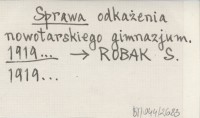 Sprawa odkażenia
nowotarskiego gimnazjum.
1919... → ROBAK S.
1919...